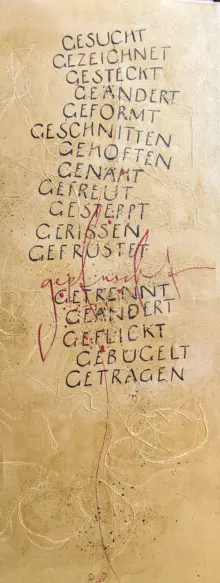 GESUCHT
GEZEICHNET
GESTECKT
GEÄNDERT
GEFORMT
GESCHNITTEN
GEHOFTEN
GENÄHT
GEFREUT
GESTEPPT
GERISSEN
GEFRUSTET
gepfuscht
GETRENNT
GEÄNDERT
GEFLICKT
GEBÜGELT
GETRAGEN